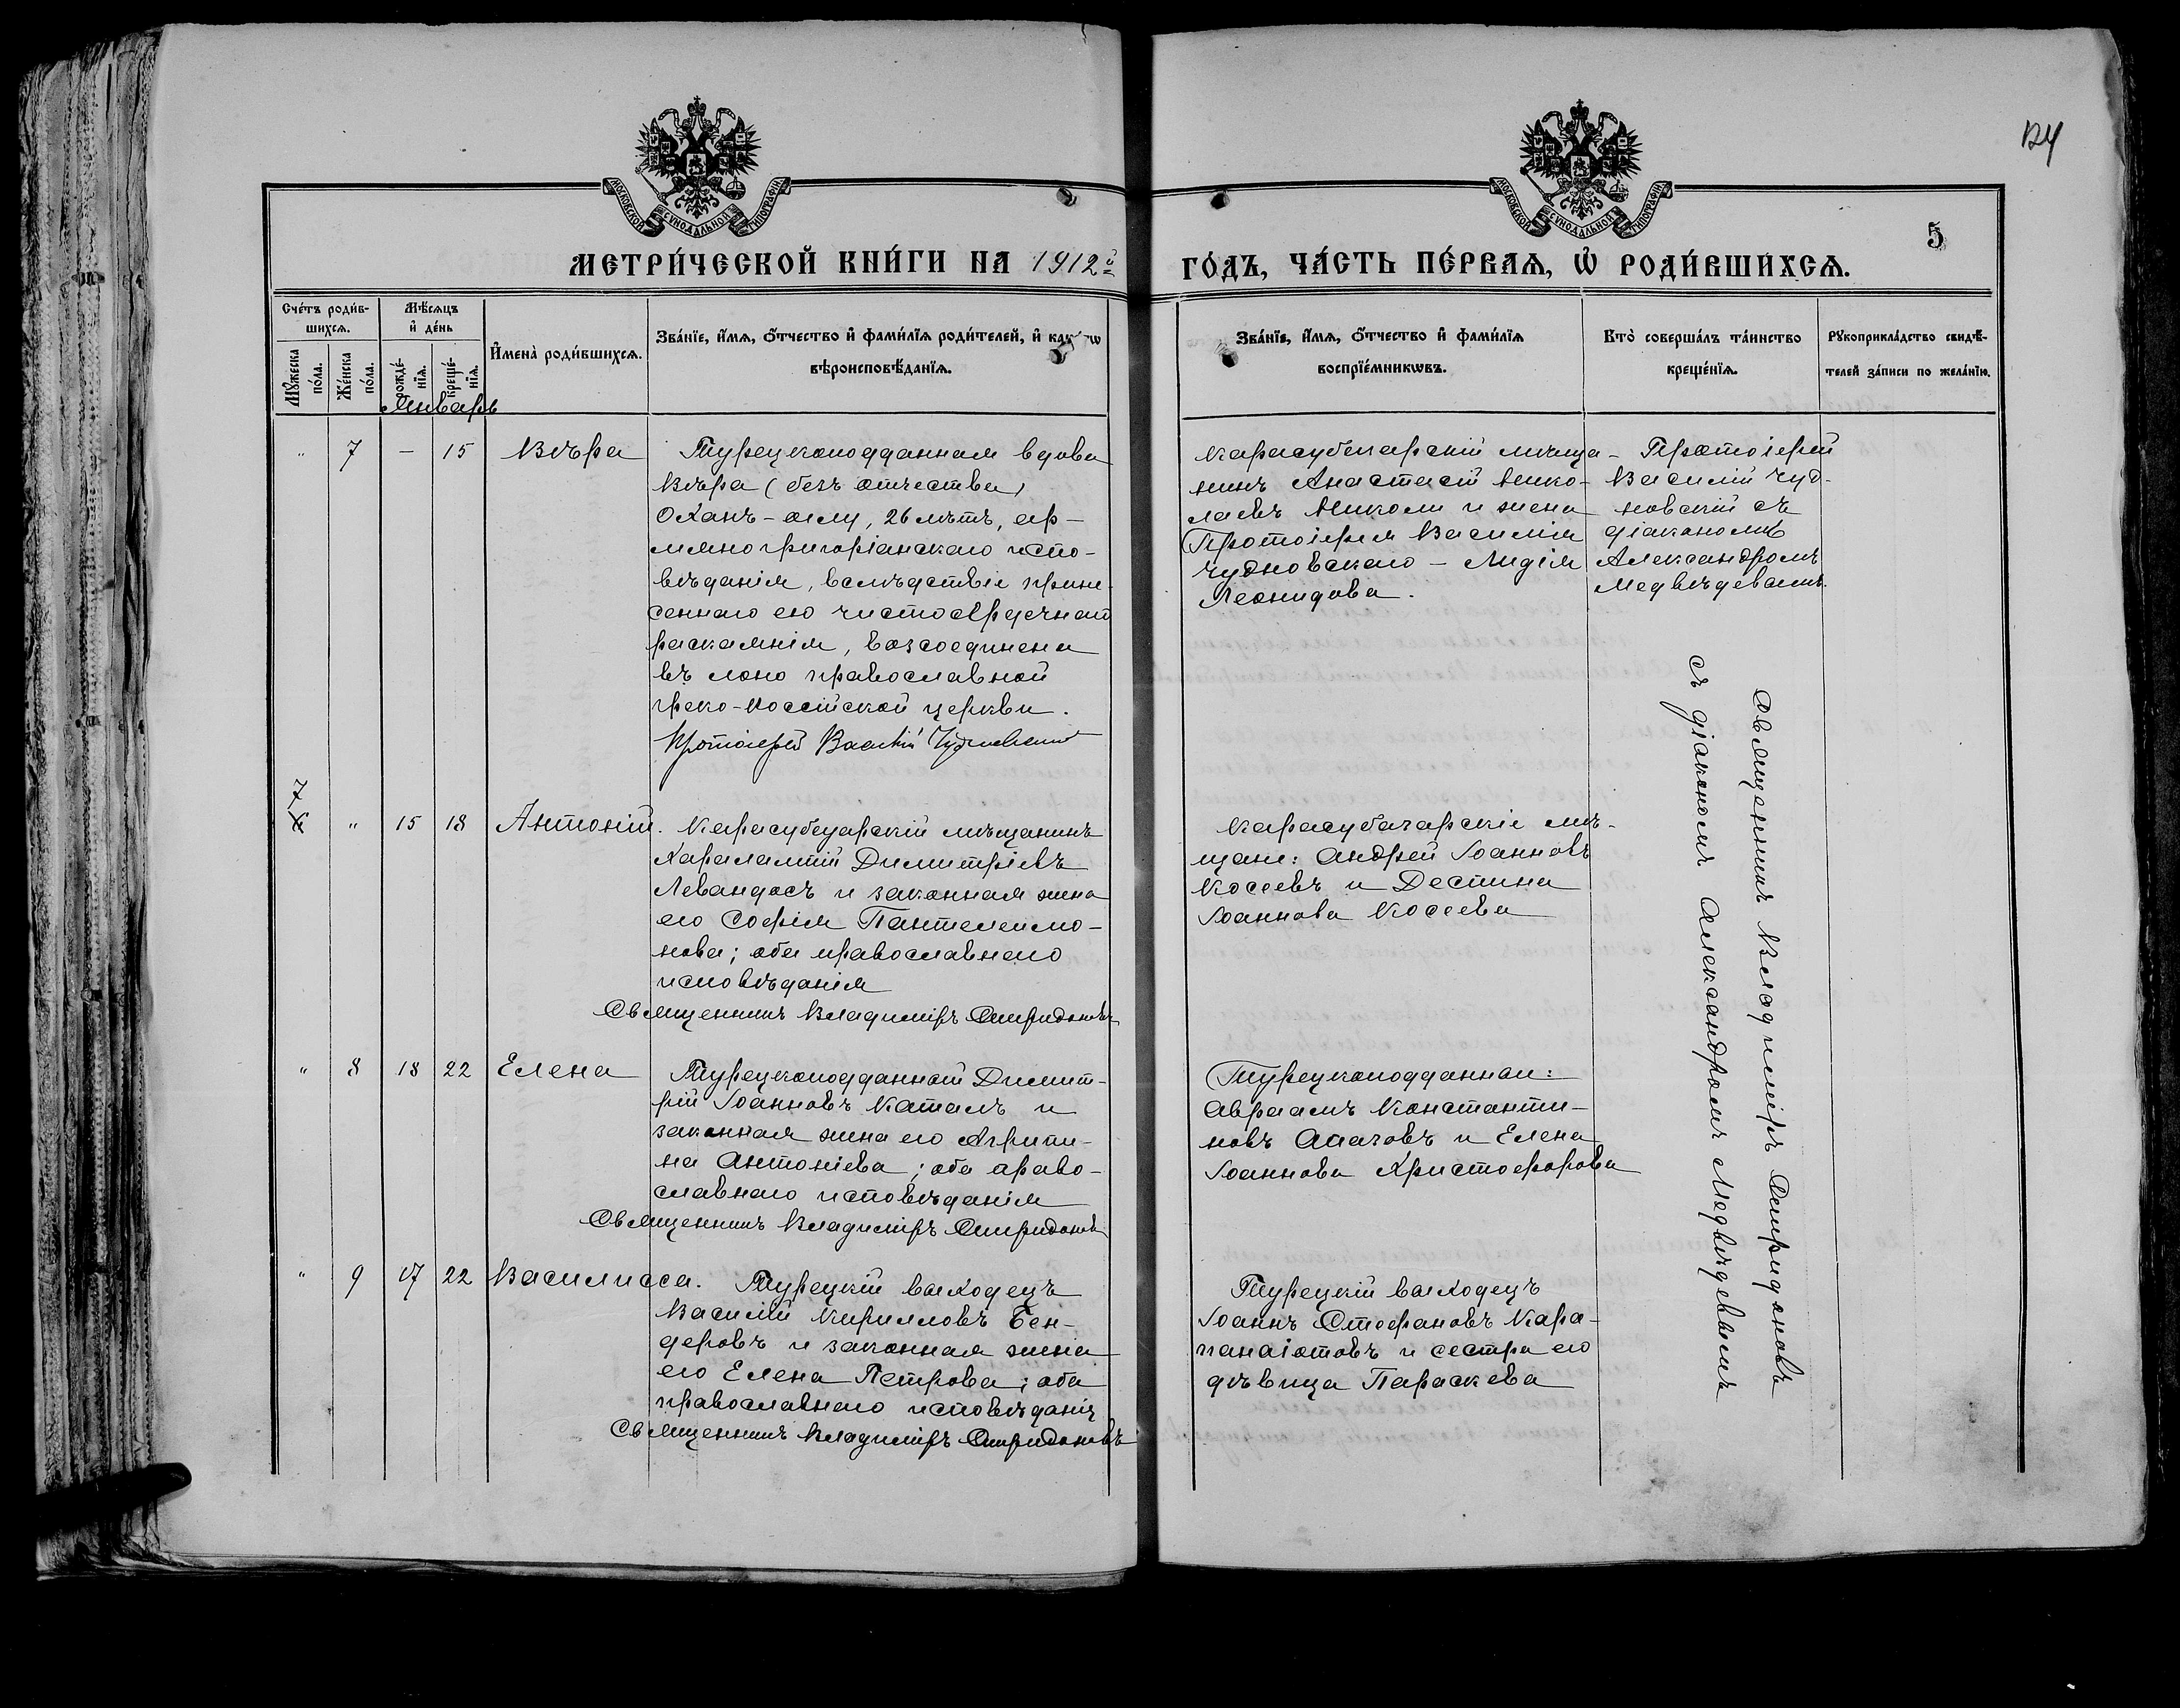 124
5
МОСКОВСКОЙ СѴНОДАЛЬНОЙ ТИПОГРАФІИ
МОСКОВСКОЙ СѴНОДАЛЬНОЙ ТИПОГРАФІИ
МЕТРИ́ЧЕСКОЙ КНИ́ГИ НА 1912й ГО́ДЪ, ЧА́СТЬ ПЕ́РВАѦ, Ѡ҆ РОДИ́ВШИХСѦ.
Сче́тъ роди́в-
шихсѧ.
Мꙋ́жеска
по́ла.
Же́нска
по́ла.
Мѣ́сѧцъ
и҆ де́нь
рожде́-
нїѧ.
креще́-
нїѧ.
И҆мена̀ роди́вшихсѧ.
Зва́нїе, и҆́мѧ, ѻ҆́тчество и҆ фами́лїѧ роди́телей, и҆ како́гѡ
вѣроисповѣ́данїѧ.
Зва́нїе, и҆́мѧ, ѻ҆́тчество и҆ фами́лїѧ
воспрїе́мникѡвъ.
Кто̀ соверша́лъ та́инство
креще́нїѧ.
Рꙋкоприкла́дство свидѣ́-
телей за́писи по жела́нїю.
Январь
" 7 – 15 Вѣра
Турецкоподданная вдова
Вѣра (безъ отчества)
Оханъ-оглу, 26 лѣтъ, ар-
мяногригоріанскаго испо-
вѣданія, вслѣдствіе прине-
сеннаго ею чистосердечнаго
раскаянія, возсоединена
въ лоно православной
греко-россійской церкви.
Протоіерей Василій Чудновскій
Карасубазарскій мѣща-
нинъ Анастасій Нико-
лаевъ Николи и жена
Протоіерея Василія
Чудновскаго – Лидія
Леонидова.
Протоіерей
Василій Чуд-
новскій съ
діакономъ
Александромъ
Медвѣдевымъ.
7 " 15 18 Антоній.
Карасубазарскій мѣщанинъ
Харалампій Димитріевъ
Левандосъ и законная жена
его Софія Пантелеимо-
нова; оба православнаго
исповѣданія
Священникъ Владиміръ Спиридоновъ
Карасубазарскіе мѣ-
щане: Андрей Іоанновъ
Косеевъ и Деспина
Іоаннова Косеева
Священникъ Владиміръ Спиридоновъ
съ діакономъ Александромъ Медвѣдевымъ
" 8 18 22 Елена
Турецкоподданный Димит-
рій Іоанновъ Каталъ и
законная жена его Агрипи-
на Антоніева; оба право-
славнаго исповѣданія
Священникъ Владиміръ Спиридоновъ
Турецкоподданные:
Авраамъ Константи-
новъ и Елена
Іоаннова Христофорова
" 9 17 22 Василисса.
Турецкій выходецъ
Василій Кирилловъ Бен-
деровъ и законная жена
его Елена Петрова; оба
православнаго исповѣданія
Священникъ Владиміръ Спиридоновъ
Турецкій выходецъ
Іоаннъ Стефановъ Кара-
панаіотовъ и сестра его
дѣвица Параскева